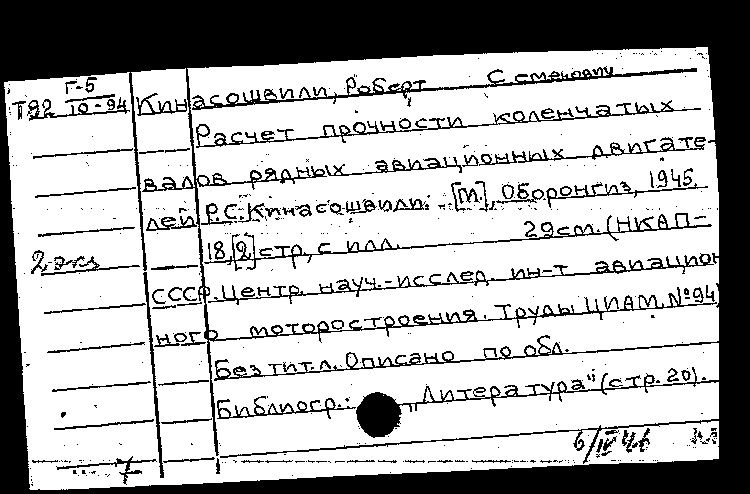 Г-5
Т92 10-94 Кинасошвили, Роберт Семенович
Расчет прочности коленчатых
валов рядных авиационных двигате-
лей Р.С. Кинасошвили. [М.], Оборонгиз, 1945.
2 экз 18,[2] стр, с илл. 29см. (НКАП-
СССР. Центр. науч.-исслед. ин-т авиацион
ного моторостроения. Труды ЦИАМ, №94)
Без тит. л. Описано по обл.
Библиогр.: „Литература" (стр. 20).
6/IV 46
7